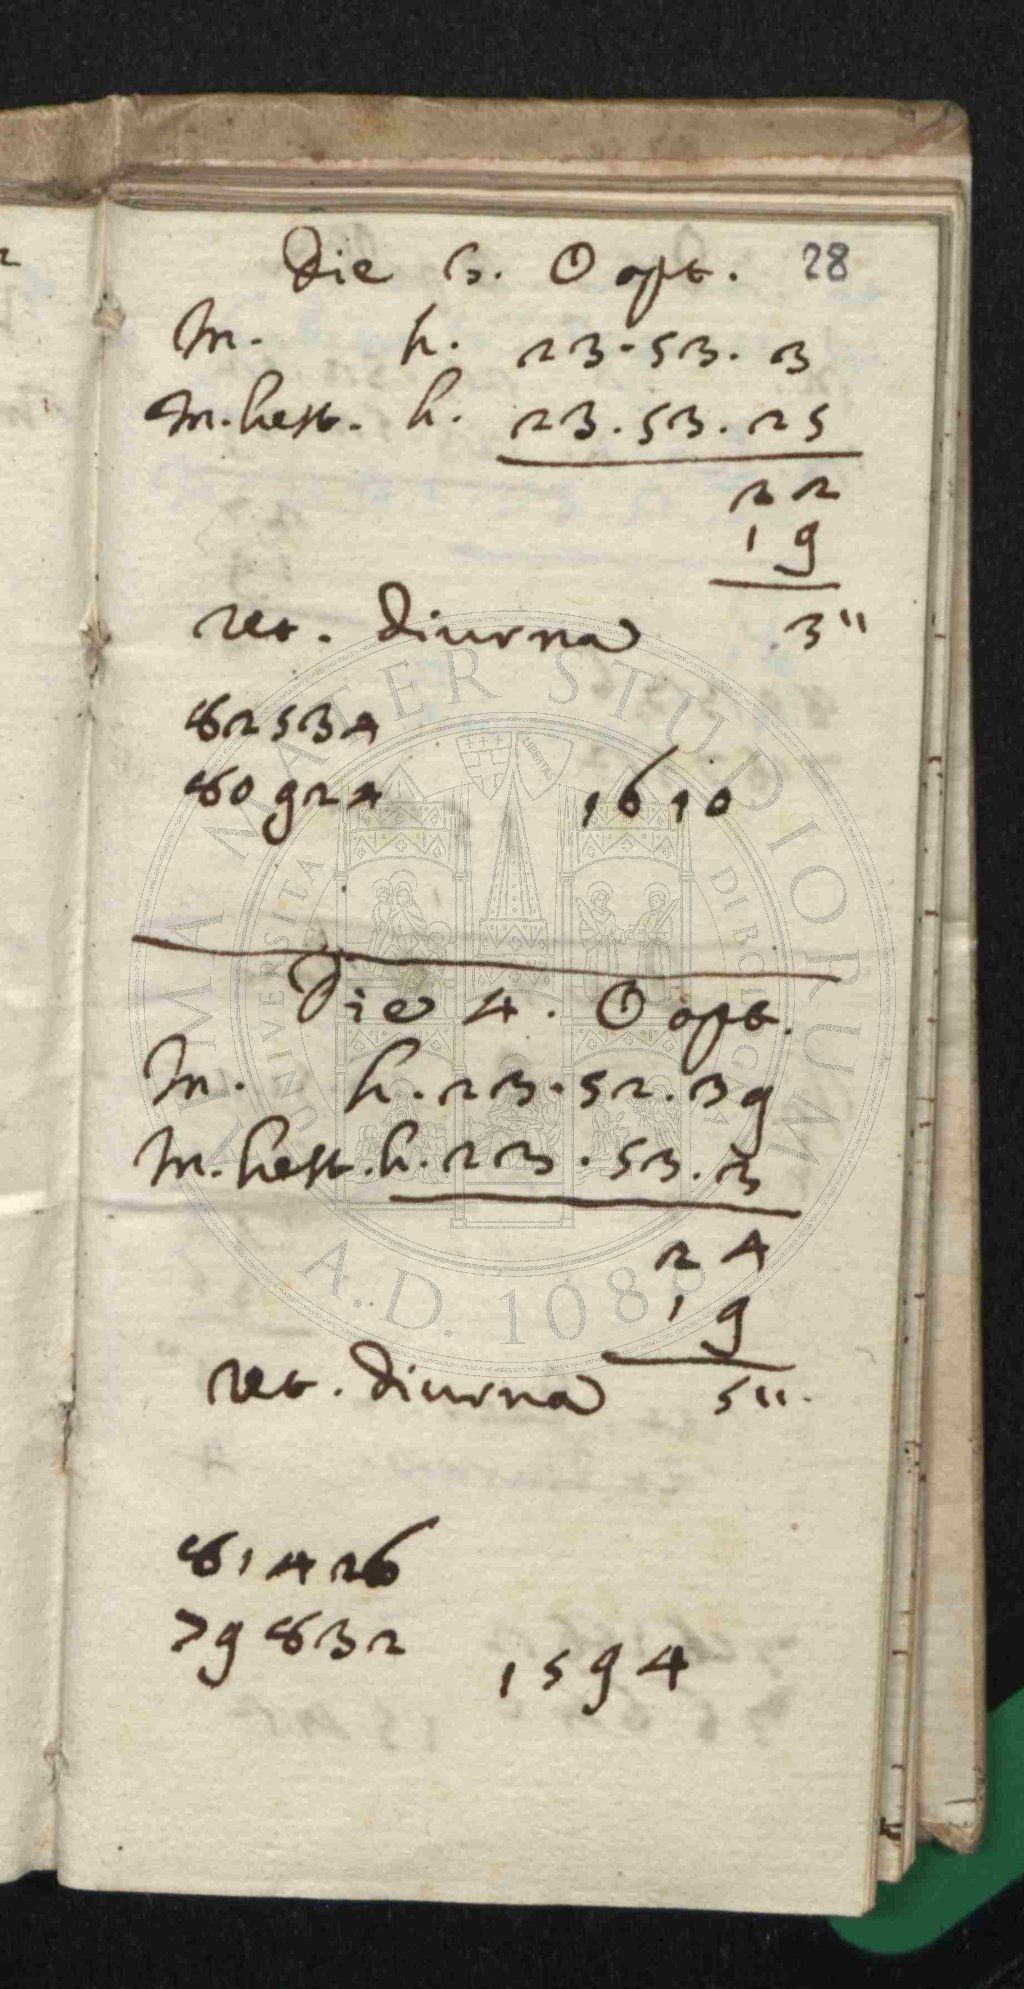 28
Die 3. ☉ opt.
M. h. 23.53.3
M. hest. h. 23.53.25
22
19
ret. diurna 3"
82534
80924 1610
Die 4. ☉ opt.
M. h. 23.52.39
M. hest. h. 23.53.3
24
19
ret. diurna 5".
81426
79832 1594
ALMA MATER STUDIORUM
UNIVERSITA DI BOLOGNA
A.D. 1088